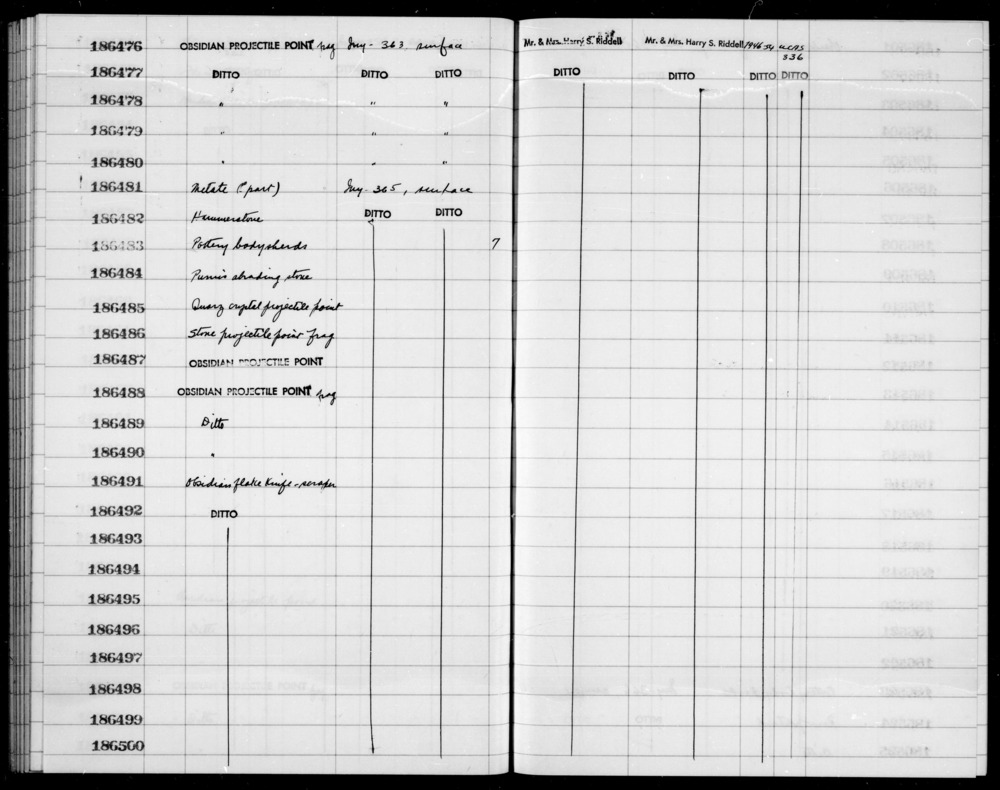 186476 OBSIDIAN PROJECTILE POINT frag Iny-363 surface Mr. & Mrs. Harry S. Riddell Mr. & Mrs. Harry S. Riddell 1946-54 UCAS
336
186477 DITTO DITTO DITTO DITTO DITTO DITTO DITTO
186478 " " "
186479 " " "
186480 " " "
186481 Metate (? part) Iny-365, surface
186482 Hammerstone DITTO DITTO
186483 Pottery bodysherds 7
186484 Pumis abrading stone
186485 Quarz crystal projectile point
186486 Stone projectile point frag
186487 OBSIDIAN PROJECTILE POINT
186488 OBSIDIAN PROJECTILE POINT frag
186489 Ditto
186490 "
186491 Obsidian flake knife-scraper
186492 DITTO
186493
186494
186495
186496
186497
186498
186499
186500